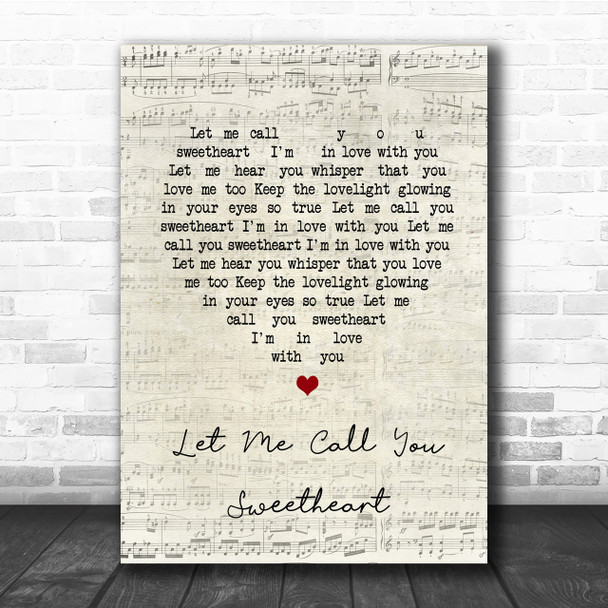 Let me call y o u
sweetheart I'm in love with you
Let me hear you whisper that you
love me too Keep the lovelight glowing
in your eyes so true Let me call you
sweetheart I'm in love with you Let me
call you sweetheart I'm in love with you
Let me hear you whisper that you love
me too Keep the lovelight glowing
in your eyes so true Let me
call you sweetheart
I'm in love
with you
Let Me Call You
Sweetheart